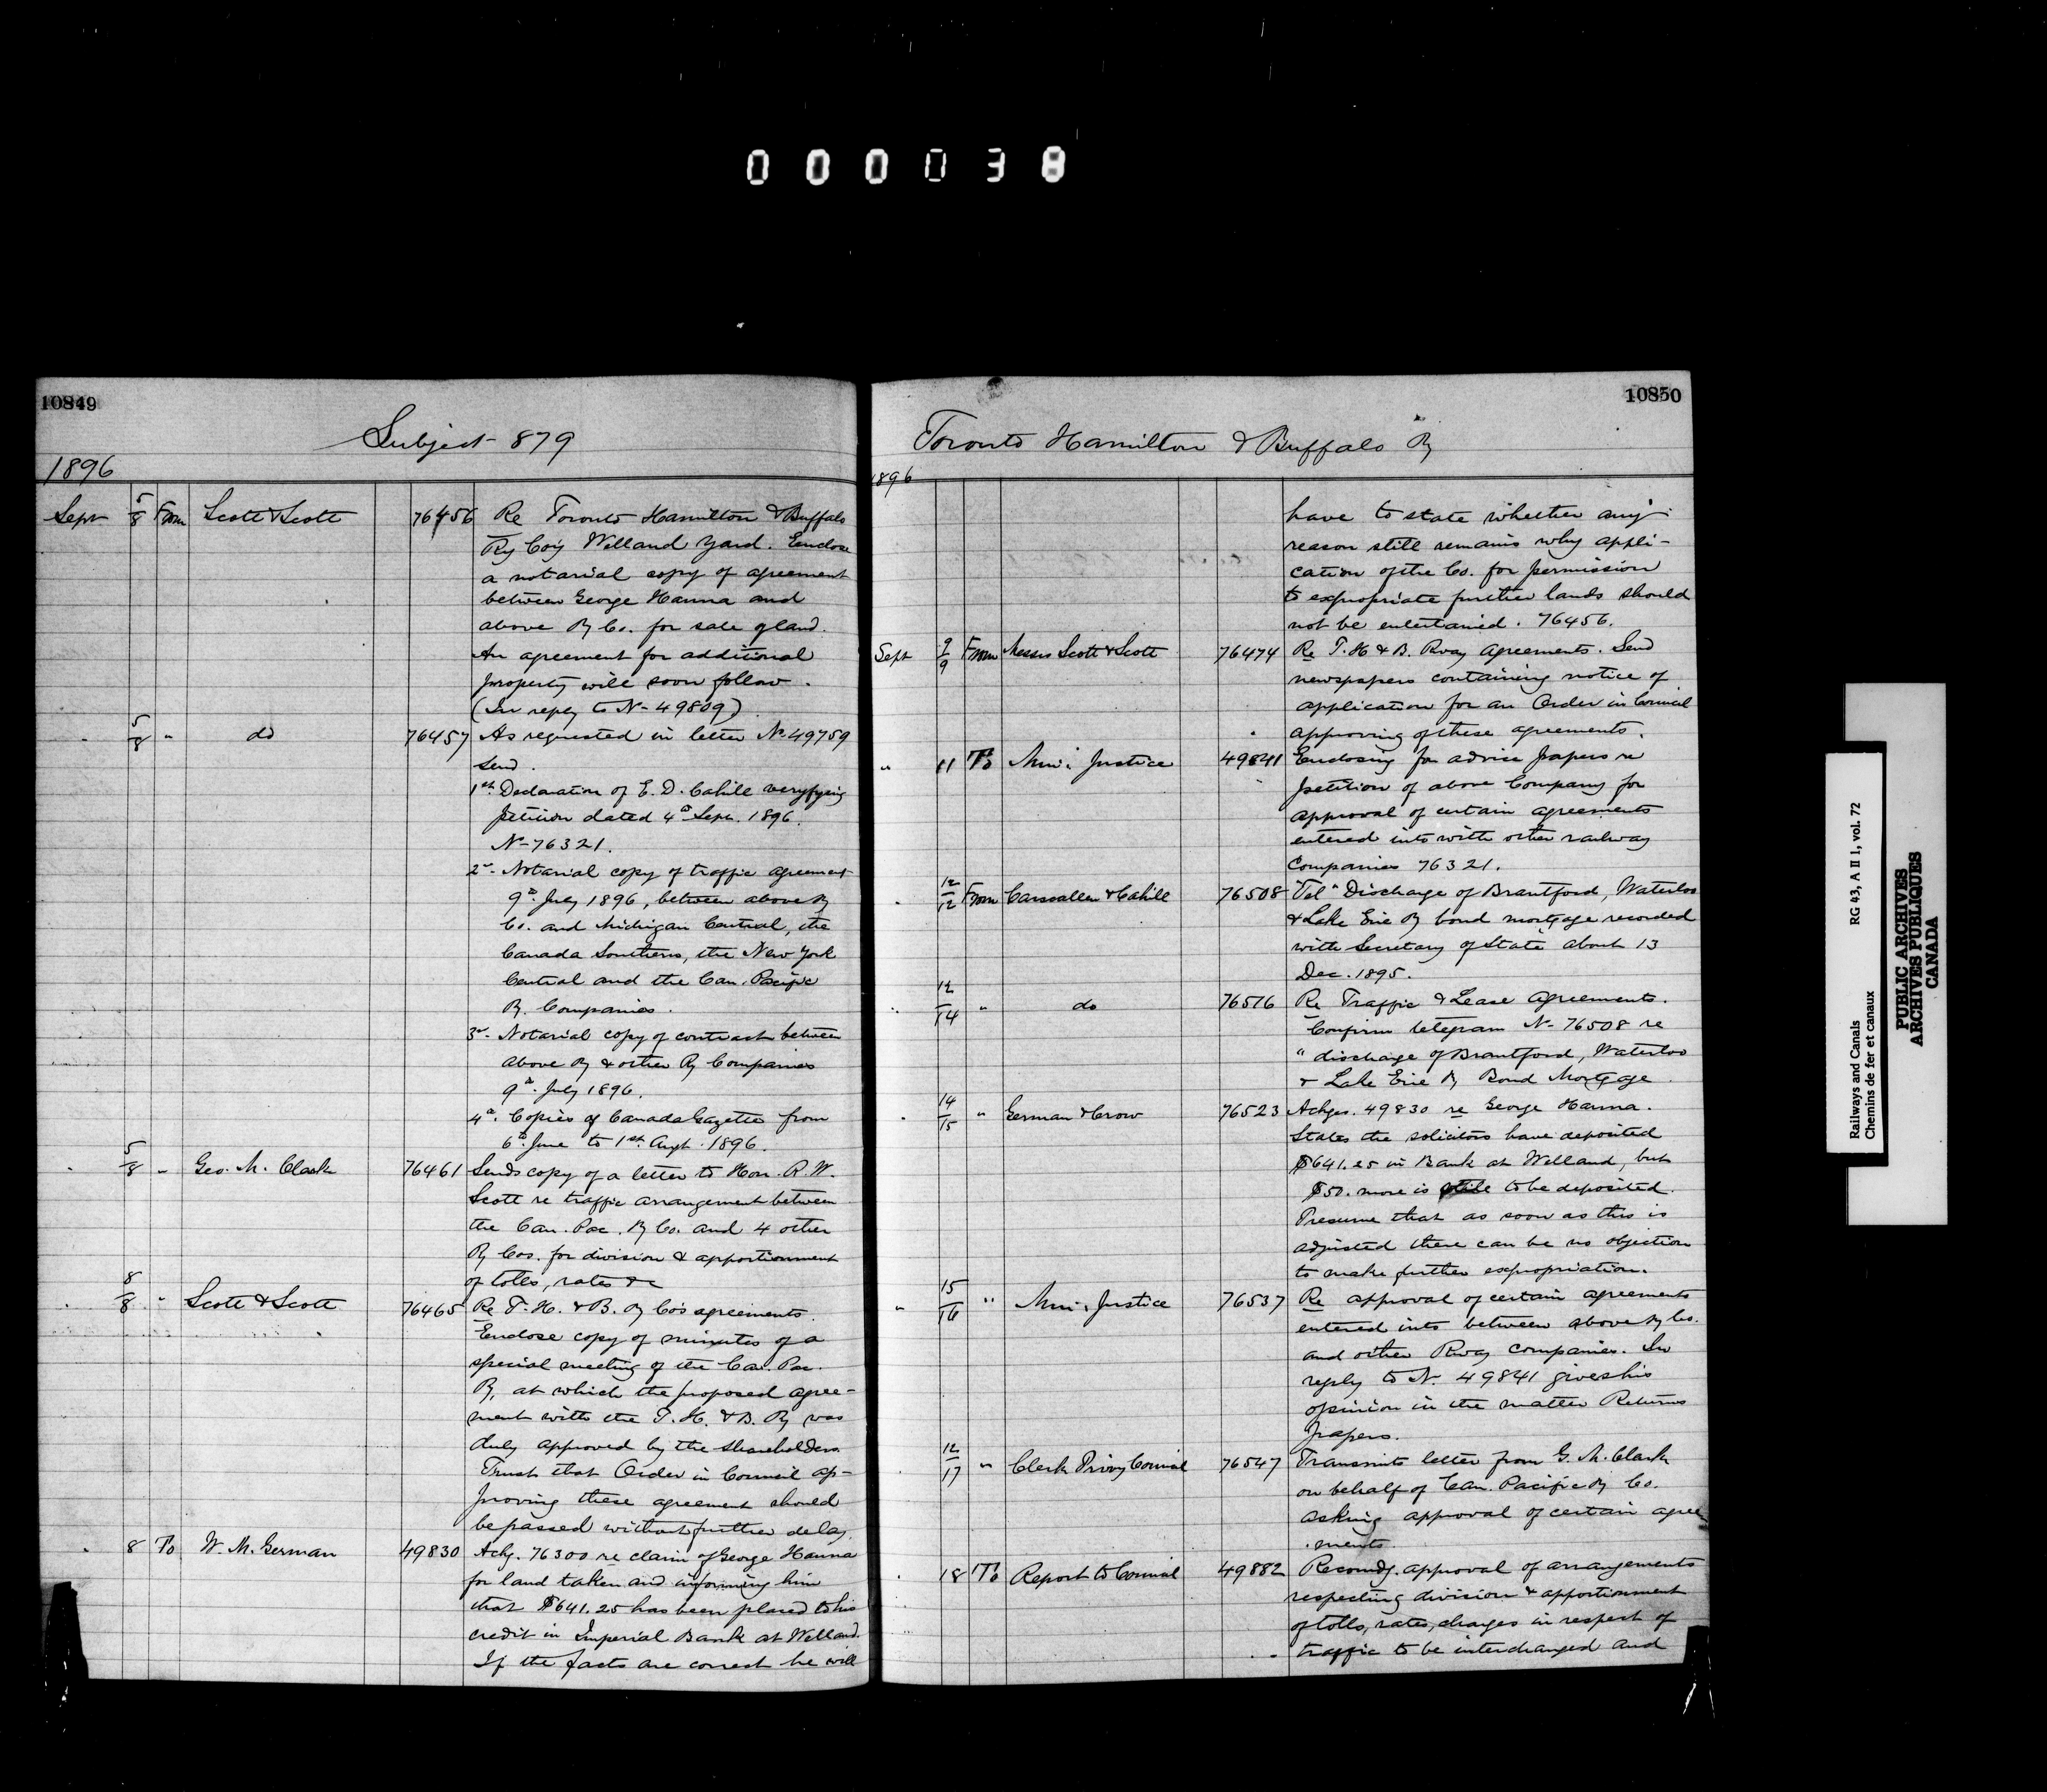 000038
10849
Subject 879
1896
Sept 5/8 From Scott & Scott 76456 Re Toronto Hamilton & Buffalo
Ry Coy Welland Yard. Enclose
a notarial copy of agreement
between George Hanna and
above Ry Co. for sale of land.
An agreement for additional
property will soon follow.
(In reply to No 49809)
" 5/8 " do 76457 As requested in letter No 49759
send.
1st Declaration of E. D. Cahill veryfying
petition dated 4th Sept. 1896.
No 76321.
2nd Notarial copy of traffic agreement
9th July 1896, between above Ry
Co. and Michigan Central, the
Canada Southern, the New York
Central and the Can. Pacific
Ry. Companies.
3rd Notarial copy of contract between
above Ry & other Ry Companies
9th July 1896.
4th Copies of Canada Gazette from
6th June to 1st Augt. 1896.
" 5/8 " Geo. M. Clark 76461 Sends copy of a letter to Hon. R. W.
Scott re traffic arrangement between
the Can. Pac. Ry Co. and 4 other
Ry Cos. for division & apportionment
of tolls, rates &c
" 8/8 " Scott & Scott 76465 Re T. H. & B. Ry Co's agreements.
Enclose copy of minutes of a
special meeting of the Can. Pac.
Ry, at which the proposed agree-
ment with the T. H. & B. Ry was
duly approved by the shareholders.
Trust that Order in Council ap-
proving these agreement should
be passed without further delay.
" 8 To W. M. German 49830 Ackg. 76300 re claim of George Hanna
for land taken and informing him
that $641.25 has been placed to his
credit in Imperial Bank at Welland.
If the facts are correct he will
10850
Toronto Hamilton & Buffalo Ry
1896
have to state whether any
reason still remains why appli-
cation of the Co. for permission
to expropriate further lands should
not be entertained. 76456.
Sept 9/9 From Messrs Scott & Scott 76474 Re T. H & B. Rway Agreements. Send
newspapers containing notice of
application for an Order in Council
approving of these agreements.
" 11 To Min: Justice 49841 Enclosing for advice papers re
petition of above Company for
approval of certain agreements
entered into with other railway
Companies 76321.
" 12/12 From Carscallen & Cahill 76508 "Tel" Discharge of Brantford, Waterloo
& Lake Erie Ry bond mortgage recorded
with Secretary of State about 13
Dec. 1895.
" 12/14 " do 76516 Re Traffic & Lease Agreements.
Confirm telegram No 76508 re
" discharge of Brantford, Waterloo
& Lake Erie Ry Bond Mortgage.
" 14/15 " German & Crow 76523 Ackges. 49830 re George Hanna.
States the solicitors have deposited
$641.25 in Bank at Welland, but
$50. more is still to be deposited.
Presume that as soon as this is
adjusted there can be no objection
to make further expropriation.
" 15/16 " Min: Justice 76537 Re approval of certain agreements
entered into between above Ry Co.
and other Rway companies. In
reply to No. 49841 gives his
opinion in the matter Returns
papers.
" 12/17 " Clerk Privy Council 76547 Transmits letter from G. M. Clark
on behalf of Can. Pacific Ry Co.
asking approval of certain agree
ments
" 18 To Report to Council 49882 Recomdg. approval of arrangements
respecting division & apportionment
of tolls, rates, charges in respect of
traffic to be interchanged and
Railways and Canals RG 43, A II 1, vol. 72
Chemins de fer et canaux
PUBLIC ARCHIVES
ARCHIVES PUBLIQUES
CANADA